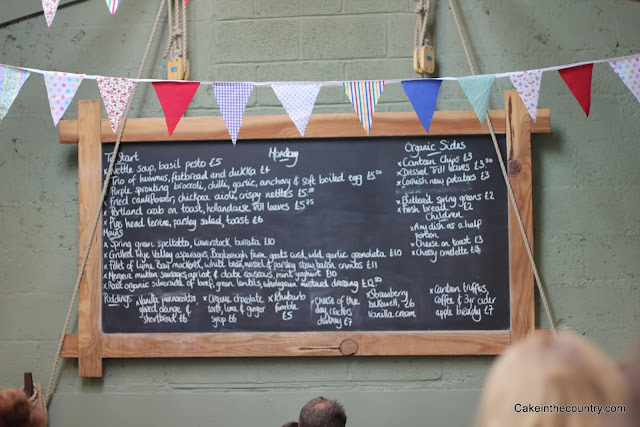 To Start
Monday
xNettle soup, basil pesto £5
xTrio of hummus, flatbread and dukka £4
xPurple sprouting broccoli, chilli, garlic, anchovy & soft boiled egg £5.50
xFried cauliflower, chickpea aioli, crispy nettles £5.50
xPortland crab on toast, hollandaise, Trill leaves £5.75
xPigs head terrine, parsley salad, toast £6
Mains
xSpring green speltotto, burrata £10
xGrilled Wye Valley asparagus, goats curd, wild garlic gremolata £10
xFillet of Lyme Bay mackerel, white bean, mussel & parsley stew, crumbs £11
xMerguez mutton sausages, apricot & date couscous, mint yoghurt £10
xRoast organic silverside of beef, green lentils, wholegrain mustard dressing £12.50
Puddings
Vanilla pannacotta
glazed orange &
shortbread £6
xOrganic chocolate
torte, lime & ginger
syrup £6
xRhubarb
fumble
£5
xCheese of the
day, crackers
chutney £7
xStrawberry
bakewell, £6
Vanilla cream
xCantain truffles,
coffee & 3yr cider
apple brandy £7
Organic Sides
xCantain Chips £3
xDressed Trill leaves £3.50
xCornish new potatoes £3
xButtered spring greens £2
xFresh bread £2
Children
xAny dish as a half
portion
xCheese on toast £3
xCheesy omelette £3
Cakeinthecountry.com